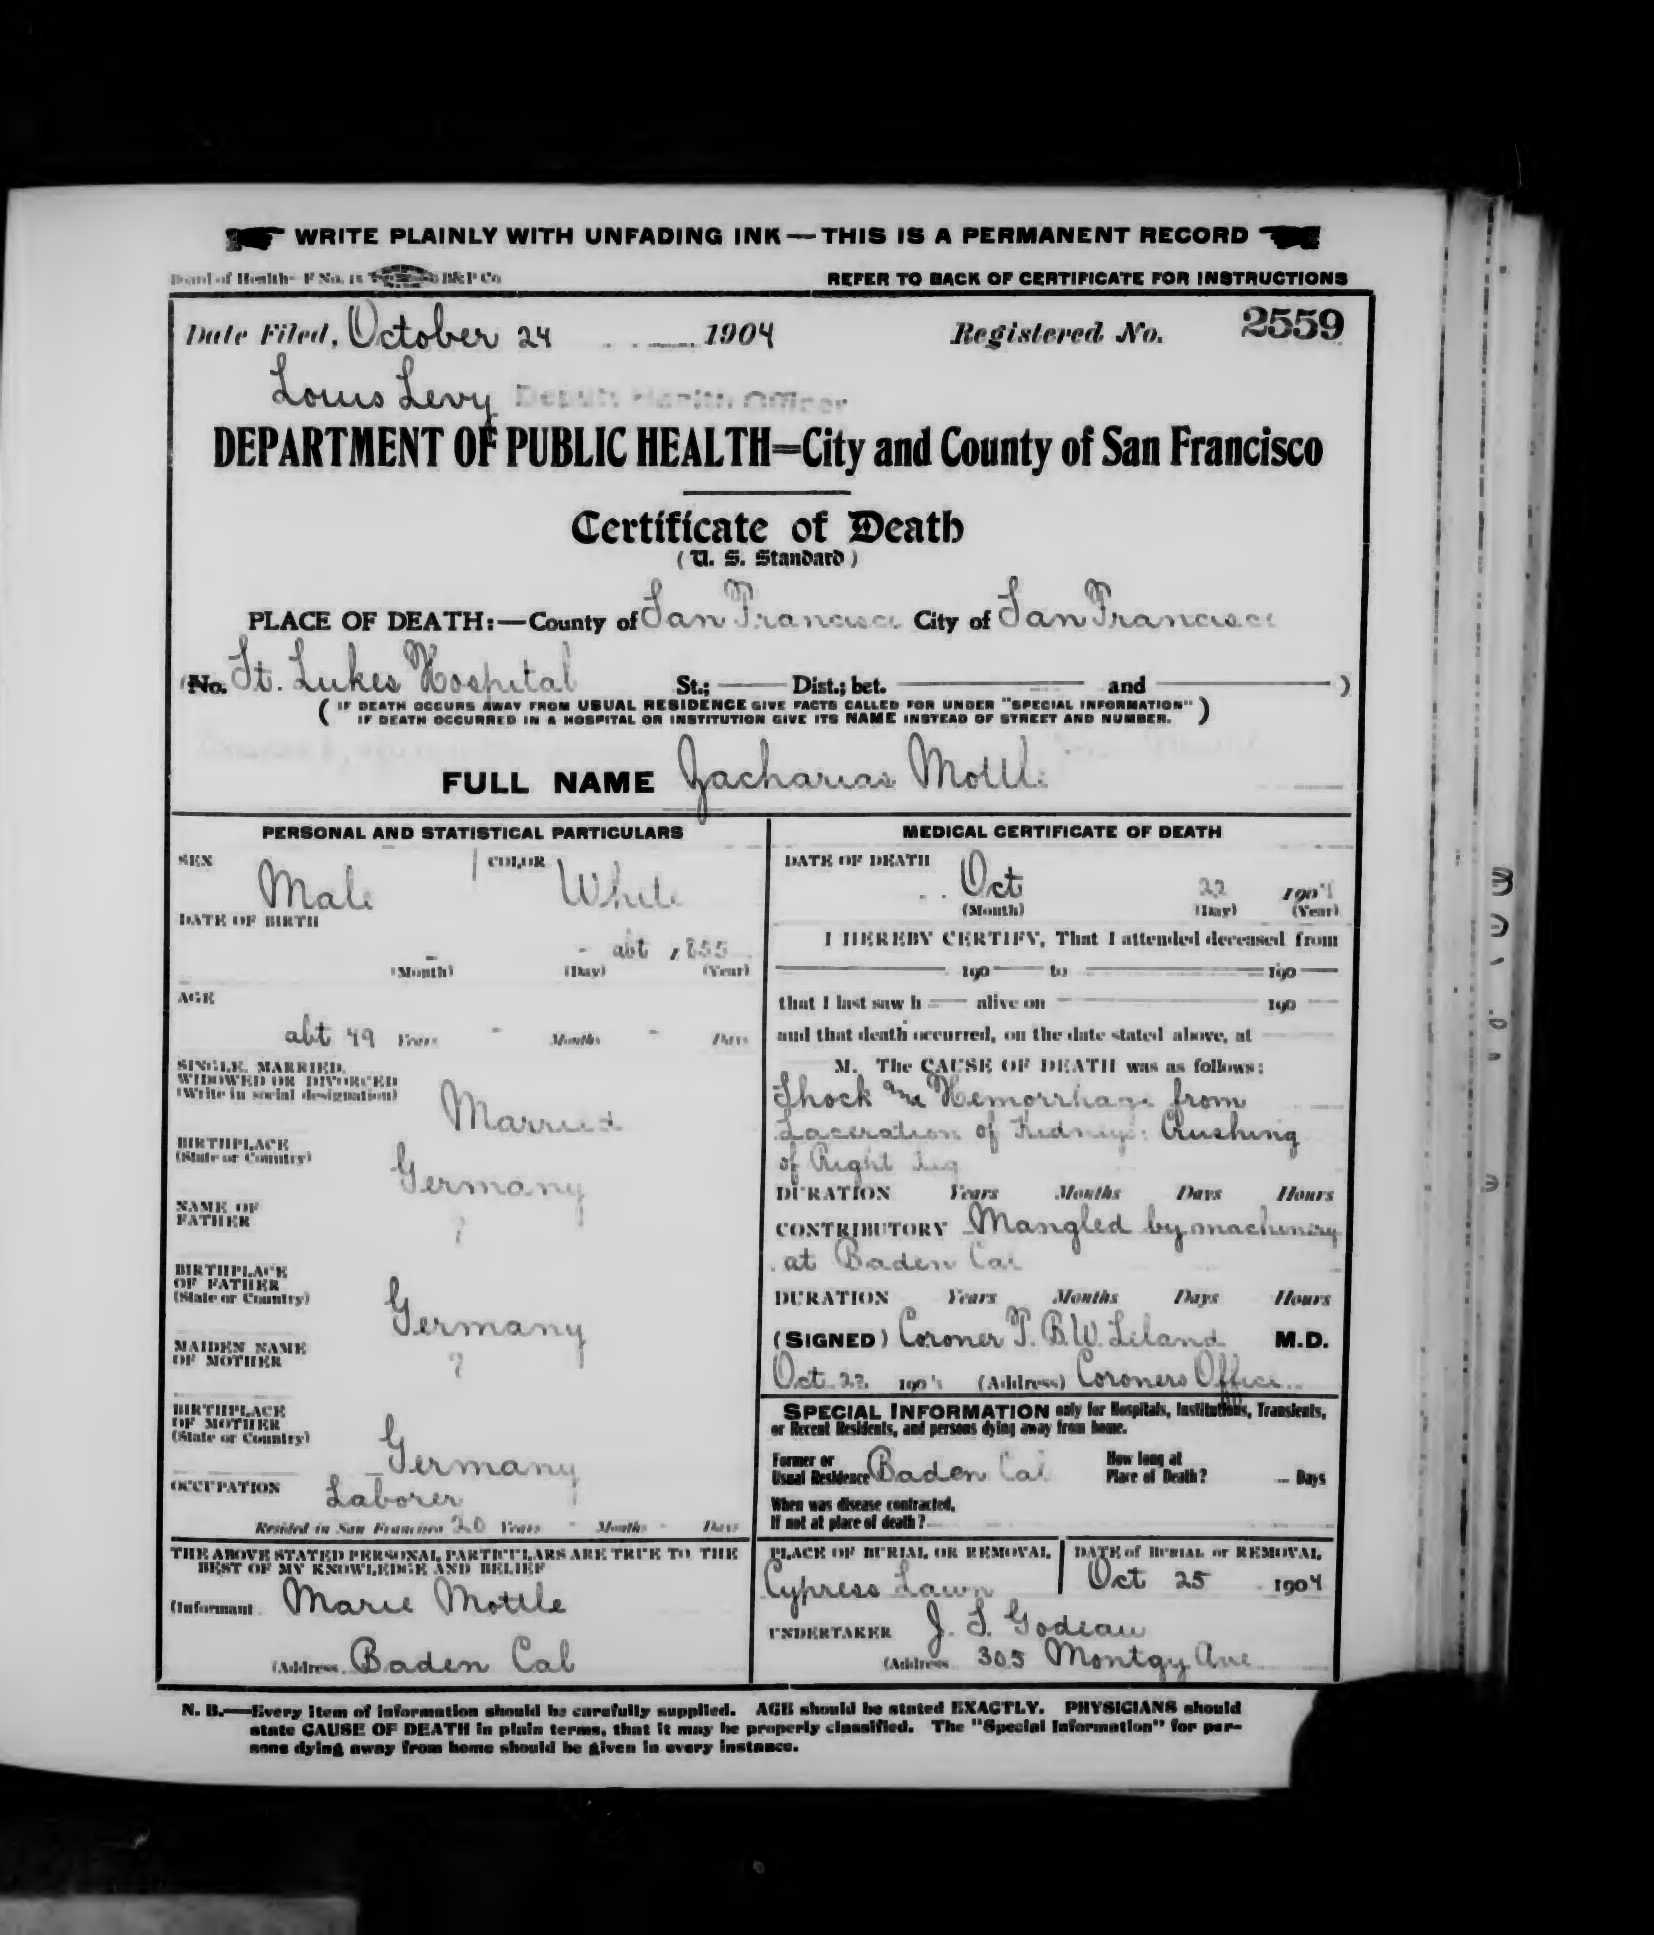 WRITE PLAINLY WITH UNFADING INK—THIS IS A PERMANENT RECORD
Board of Health—F No. 15 B&P Co
REFER TO BACK OF CERTIFICATE FOR INSTRUCTIONS
Date Filed, October 24 1904 Registered No. 2559
Louis Levy Deputy Health Officer
DEPARTMENT OF PUBLIC HEALTH=City and County of San Francisco
Certificate of Death
(U. S. Standard)
PLACE OF DEATH:—County of San Francisco City of San Francisco
(No. St. Lukes Hospital St.; Dist.; bet. and )
(IF DEATH OCCURS AWAY FROM USUAL RESIDENCE GIVE FACTS CALLED FOR UNDER "SPECIAL INFORMATION"
IF DEATH OCCURRED IN A HOSPITAL OR INSTITUTION GIVE ITS NAME INSTEAD OF STREET AND NUMBER.)
FULL NAME Zacharias Mottle
PERSONAL AND STATISTICAL PARTICULARS
SEX Male COLOR White
DATE OF BIRTH
- - abt 1855
(Month) (Day) (Year)
AGE
abt 49 Years - Months - Days
SINGLE, MARRIED,
WIDOWED OR DIVORCED
(Write in social designation) Married
BIRTHPLACE
(State or Country) Germany
NAME OF
FATHER ?
BIRTHPLACE
OF FATHER
(State or Country) Germany
MAIDEN NAME
OF MOTHER ?
BIRTHPLACE
OF MOTHER
(State or Country) Germany
OCCUPATION Laborer
Resided in San Francisco 20 Years - Months - Days
THE ABOVE STATED PERSONAL PARTICULARS ARE TRUE TO THE
BEST OF MY KNOWLEDGE AND BELIEF
(Informant Marie Mottle
(Address Baden Cal
MEDICAL CERTIFICATE OF DEATH
DATE OF DEATH
Oct 22 1904
(Month) (Day) (Year)
I HEREBY CERTIFY, That I attended deceased from
190 to 190
that I last saw h alive on 190
and that death occurred, on the date stated above, at
M. The CAUSE OF DEATH was as follows:
Shock and Hemorrhage from
Laceration of Kidneys: Crushing
of Right Leg
DURATION Years Months Days Hours
CONTRIBUTORY Mangled by machinery
at Baden Cal
DURATION Years Months Days Hours
(SIGNED) Coroner T. B. W. Leland M.D.
Oct 22 1904 (Address) Coroners Office
SPECIAL INFORMATION only for Hospitals, Institutions, Transients,
or Recent Residents, and persons dying away from home.
Former or
Usual Residence Baden Cal
How long at
Place of Death? Days
When was disease contracted,
If not at place of death?
PLACE OF BURIAL OR REMOVAL
Cypress Lawn
DATE of BURIAL or REMOVAL
Oct 25 1904
UNDERTAKER J. S. Godeau
(Address 305 Montgy Ave
N. B.—Every item of information should be carefully supplied. AGE should be stated EXACTLY. PHYSICIANS should
state CAUSE OF DEATH in plain terms, that it may be properly classified. The "Special Information" for per-
sons dying away from home should be given in every instance.